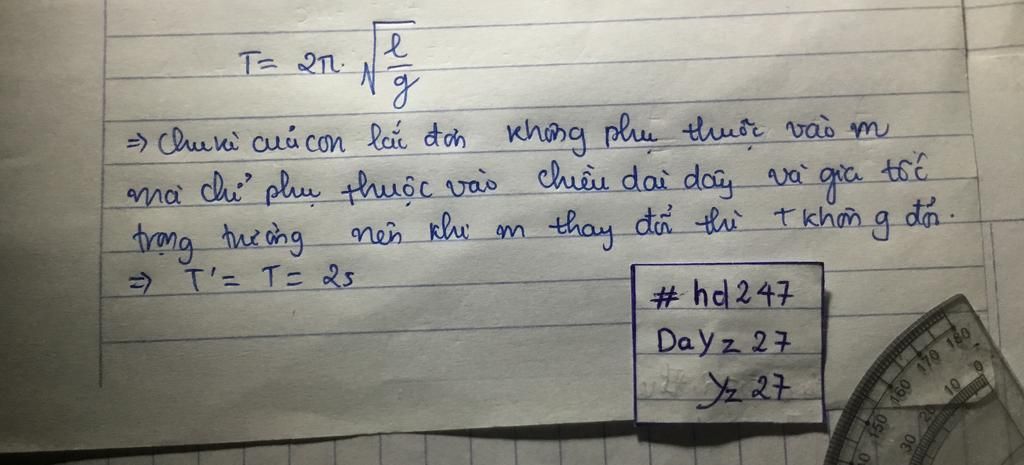 T = 2π. √(l/g)
=> Chu kì của con lắc đơn không phụ thuộc vào m
mà chỉ phụ thuộc vào chiều dài dây và gia tốc
trọng trường nên khi m thay đổi thì T không đổi.
=> T' = T = 2s
# hd247
DaYz 27
Yz 27
150 160 170 180
30 20 10 0